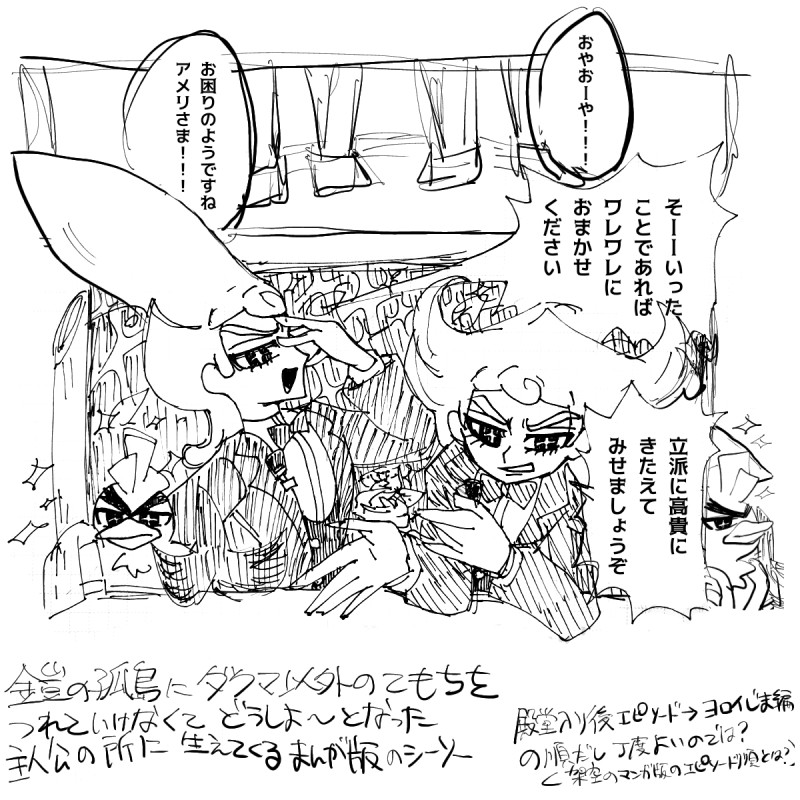 おやおーや！！！
そーーいった
ことであれば
ワレワレに
おまかせ
ください
お困りのようですね
アメリさま！！！
立派に高貴に
きたえて
みせましょうぞ
鎧の孤島に ダクマ以外のてもちを
つれていけなくて どうしよ〜となった
主人公の所に 生えてくるまんが版のシーソー
殿堂入り後エピソード→ヨロイじま編
の順だし丁度よいのでは?
(架空のマンガ版のエピソード順とは?)